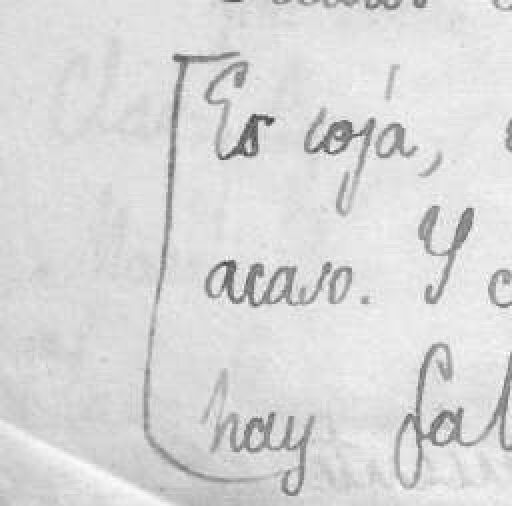 Es coja,
acaso. Y
hay fal